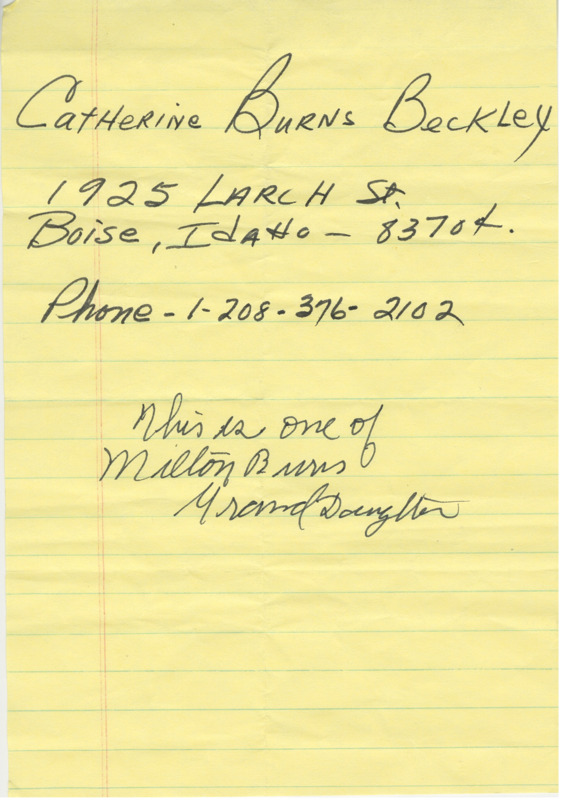 Catherine Burns Beckley
1925 Larch St.
Boise, Idaho - 83704.
Phone - 1-208-376-2102
This is one of
Milton Burns
Grand Daughter